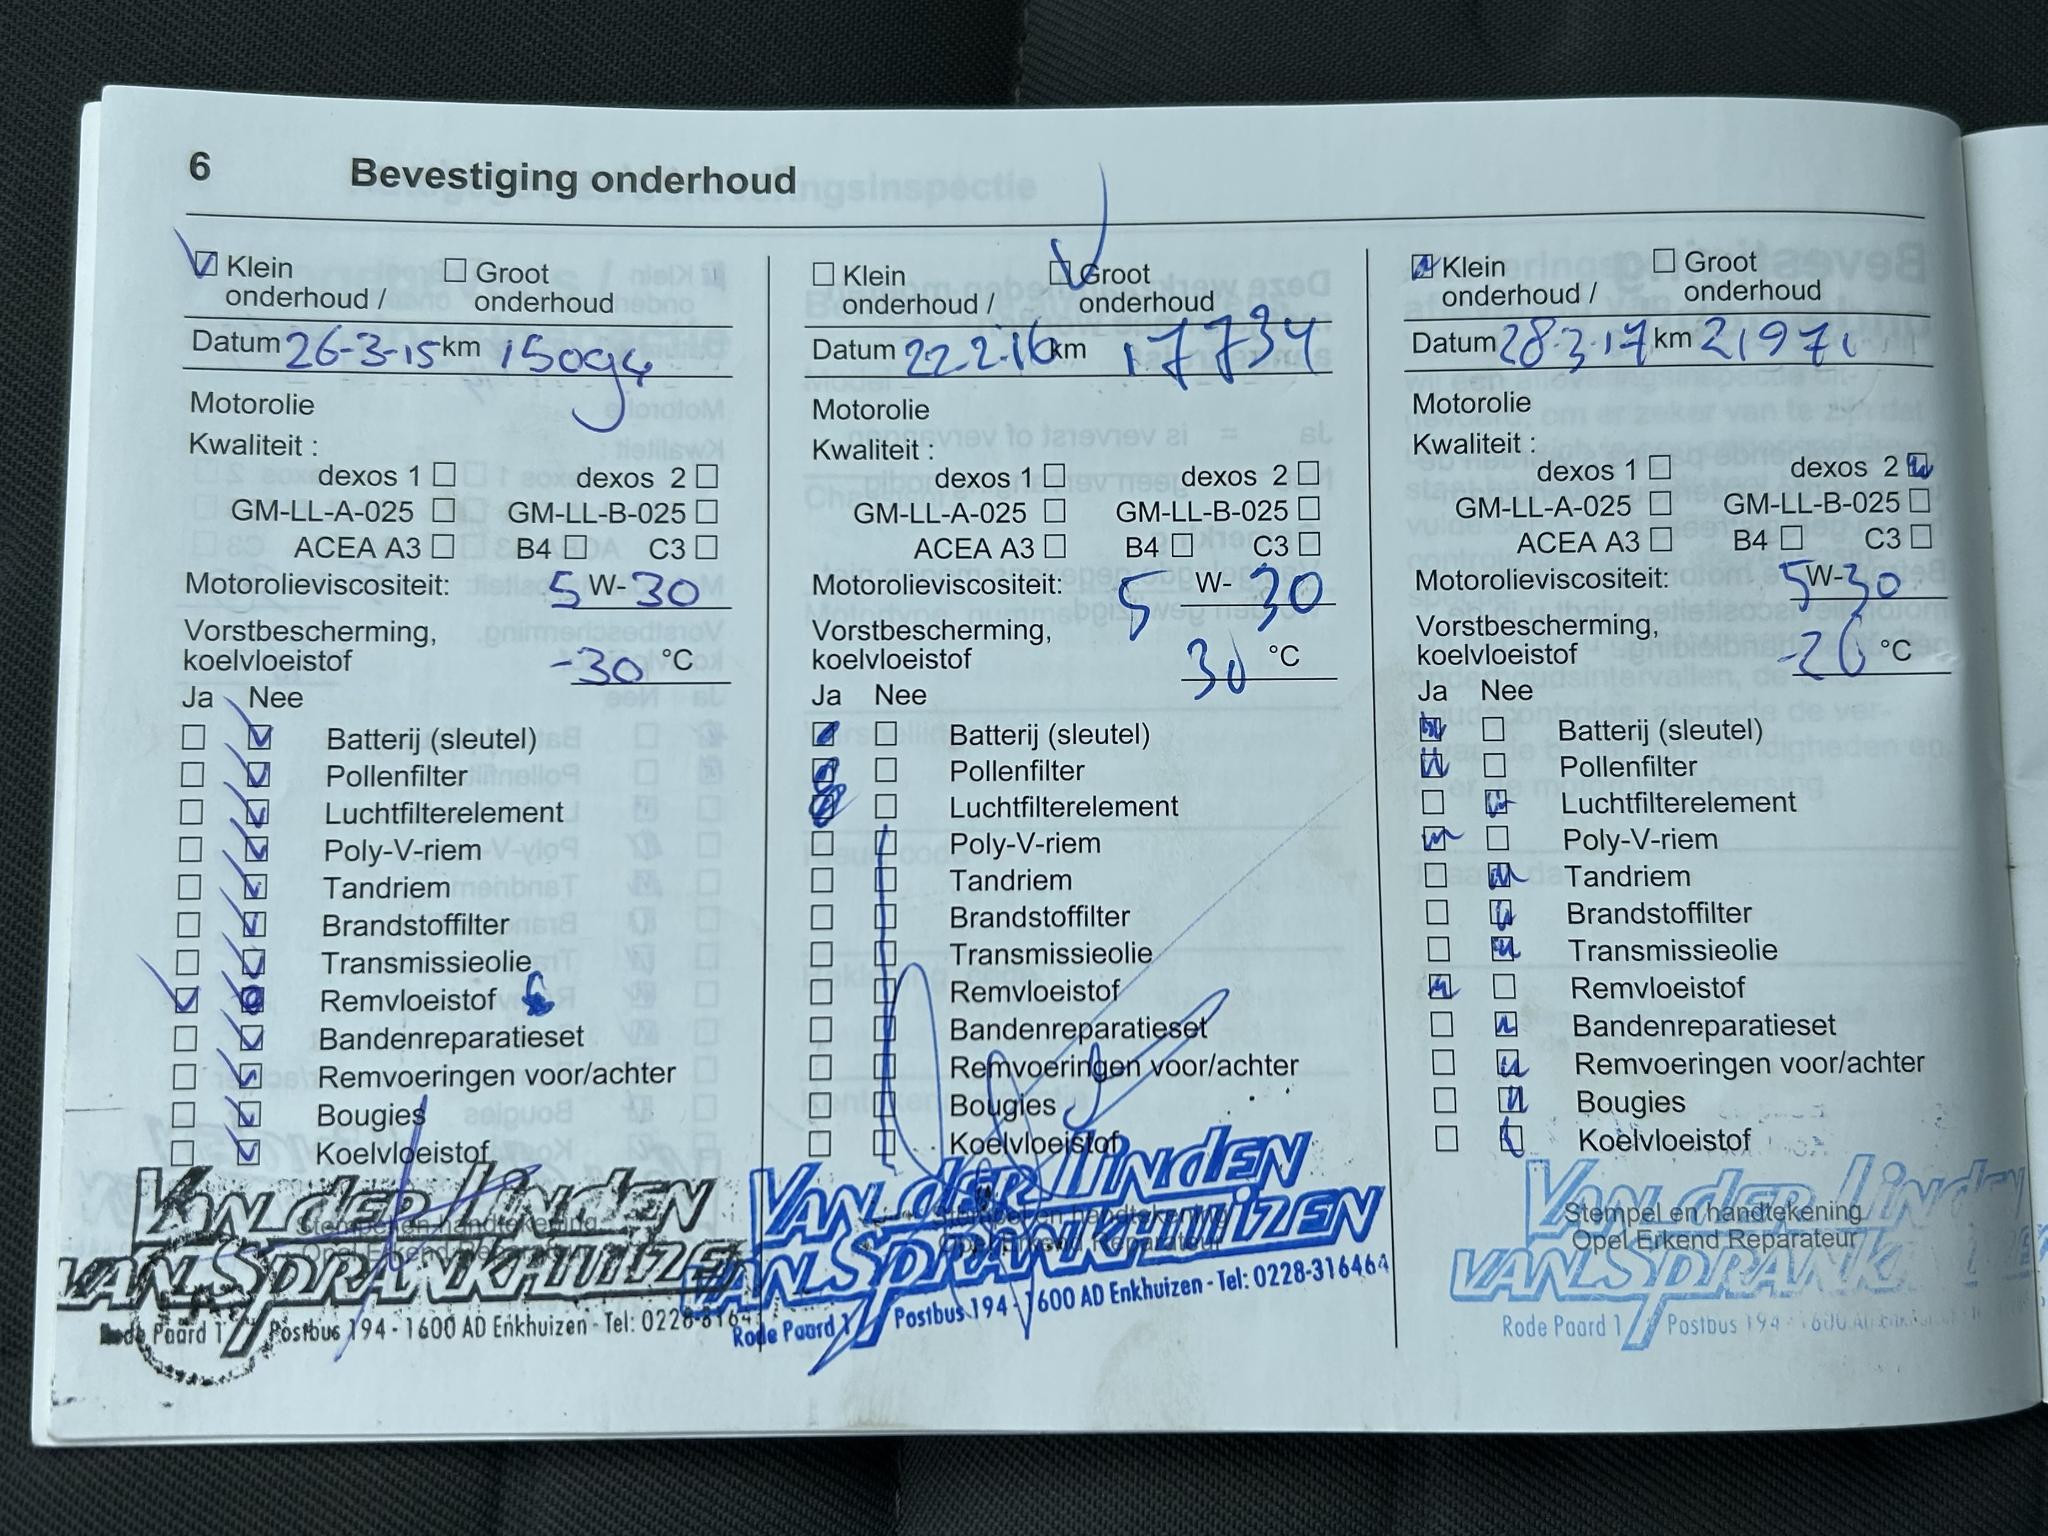 6 Bevestiging onderhoud
Klein onderhoud / Groot onderhoud
Datum 26-3-15 km 15094
Motorolie
Kwaliteit :
dexos 1 dexos 2
GM-LL-A-025 GM-LL-B-025
ACEA A3 B4 C3
Motorolieviscositeit: 5 W- 30
Vorstbescherming,
koelvloeistof -30 °C
Ja Nee
Batterij (sleutel)
Pollenfilter
Luchtfilterelement
Poly-V-riem
Tandriem
Brandstoffilter
Transmissieolie
Remvloeistof
Bandenreparatieset
Remvoeringen voor/achter
Bougies
Koelvloeistof
Stempel en handtekening
Opel Erkend Reparateur
VAN der LINDEN
VAN SPRANKHUIZEN
Rode Paard 1 Postbus 194 - 1600 AD Enkhuizen - Tel: 0228-3164
Klein onderhoud / Groot onderhoud
Datum 22.2.16 km 17734
Motorolie
Kwaliteit :
dexos 1 dexos 2
GM-LL-A-025 GM-LL-B-025
ACEA A3 B4 C3
Motorolieviscositeit: 5 W- 30
Vorstbescherming,
koelvloeistof 30 °C
Ja Nee
Batterij (sleutel)
Pollenfilter
Luchtfilterelement
Poly-V-riem
Tandriem
Brandstoffilter
Transmissieolie
Remvloeistof
Bandenreparatieset
Remvoeringen voor/achter
Bougies
Koelvloeistof
Stempel en handtekening
Opel Erkend Reparateur
VAN der LINDEN
VAN SPRANKHUIZEN
Rode Paard 1 Postbus 194 - 1600 AD Enkhuizen - Tel: 0228-316464
Klein onderhoud / Groot onderhoud
Datum 28.3.17 km 21971
Motorolie
Kwaliteit :
dexos 1 dexos 2
GM-LL-A-025 GM-LL-B-025
ACEA A3 B4 C3
Motorolieviscositeit: 5 W- 30
Vorstbescherming,
koelvloeistof -26 °C
Ja Nee
Batterij (sleutel)
Pollenfilter
Luchtfilterelement
Poly-V-riem
Tandriem
Brandstoffilter
Transmissieolie
Remvloeistof
Bandenreparatieset
Remvoeringen voor/achter
Bougies
Koelvloeistof
Stempel en handtekening
Opel Erkend Reparateur
VAN der LINDEN
VAN SPRANK
Rode Paard 1 Postbus 194 - 1600 AD